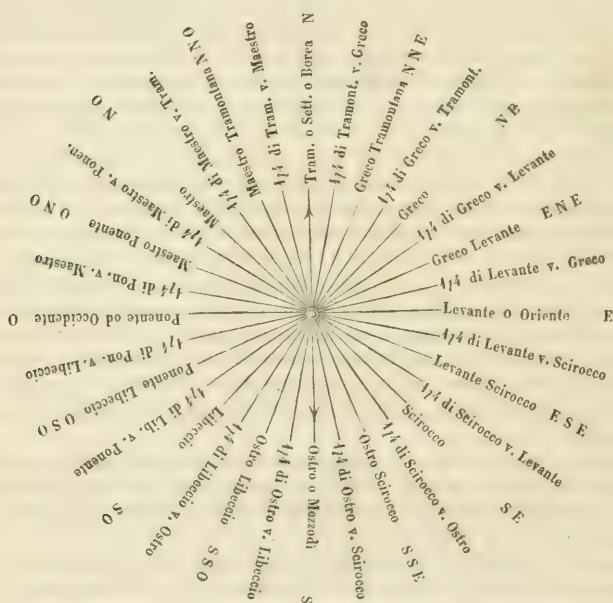 Tram. o Sett. o Borea N
1/4 di Tramont. v. Greco
Greco Tramontana NNE
1/4 di Greco v. Tramont.
Greco
NE
1/4 di Greco v. Levante
Greco Levante ENE
1/4 di Levante v. Greco
Levante o Oriente E
1/4 di Levante v. Scirocco
Levante Scirocco ESE
1/4 di Scirocco v. Levante
Scirocco
SE
1/4 di Scirocco v. Ostro
Ostro Scirocco SSE
1/4 di Ostro v. Scirocco
Ostro o Mezzodi
S
1/4 di Ostro v. Libeccio
Ostro Libeccio SSO
1/4 di Libeccio v. Ostro
Libeccio
SO
1/4 di Lib. v. Ponente
Ponente Libeccio OSO
1/4 di Pon. v. Libeccio
Ponente od Occidente O
1/4 di Pon. v. Maestro
Maestro Ponente ONO
1/4 di Maestro v. Ponen.
Maestro
NO
1/4 di Maestro v. Tram.
Maestro Tramontana NNO
1/4 di Tram. v. Maestro